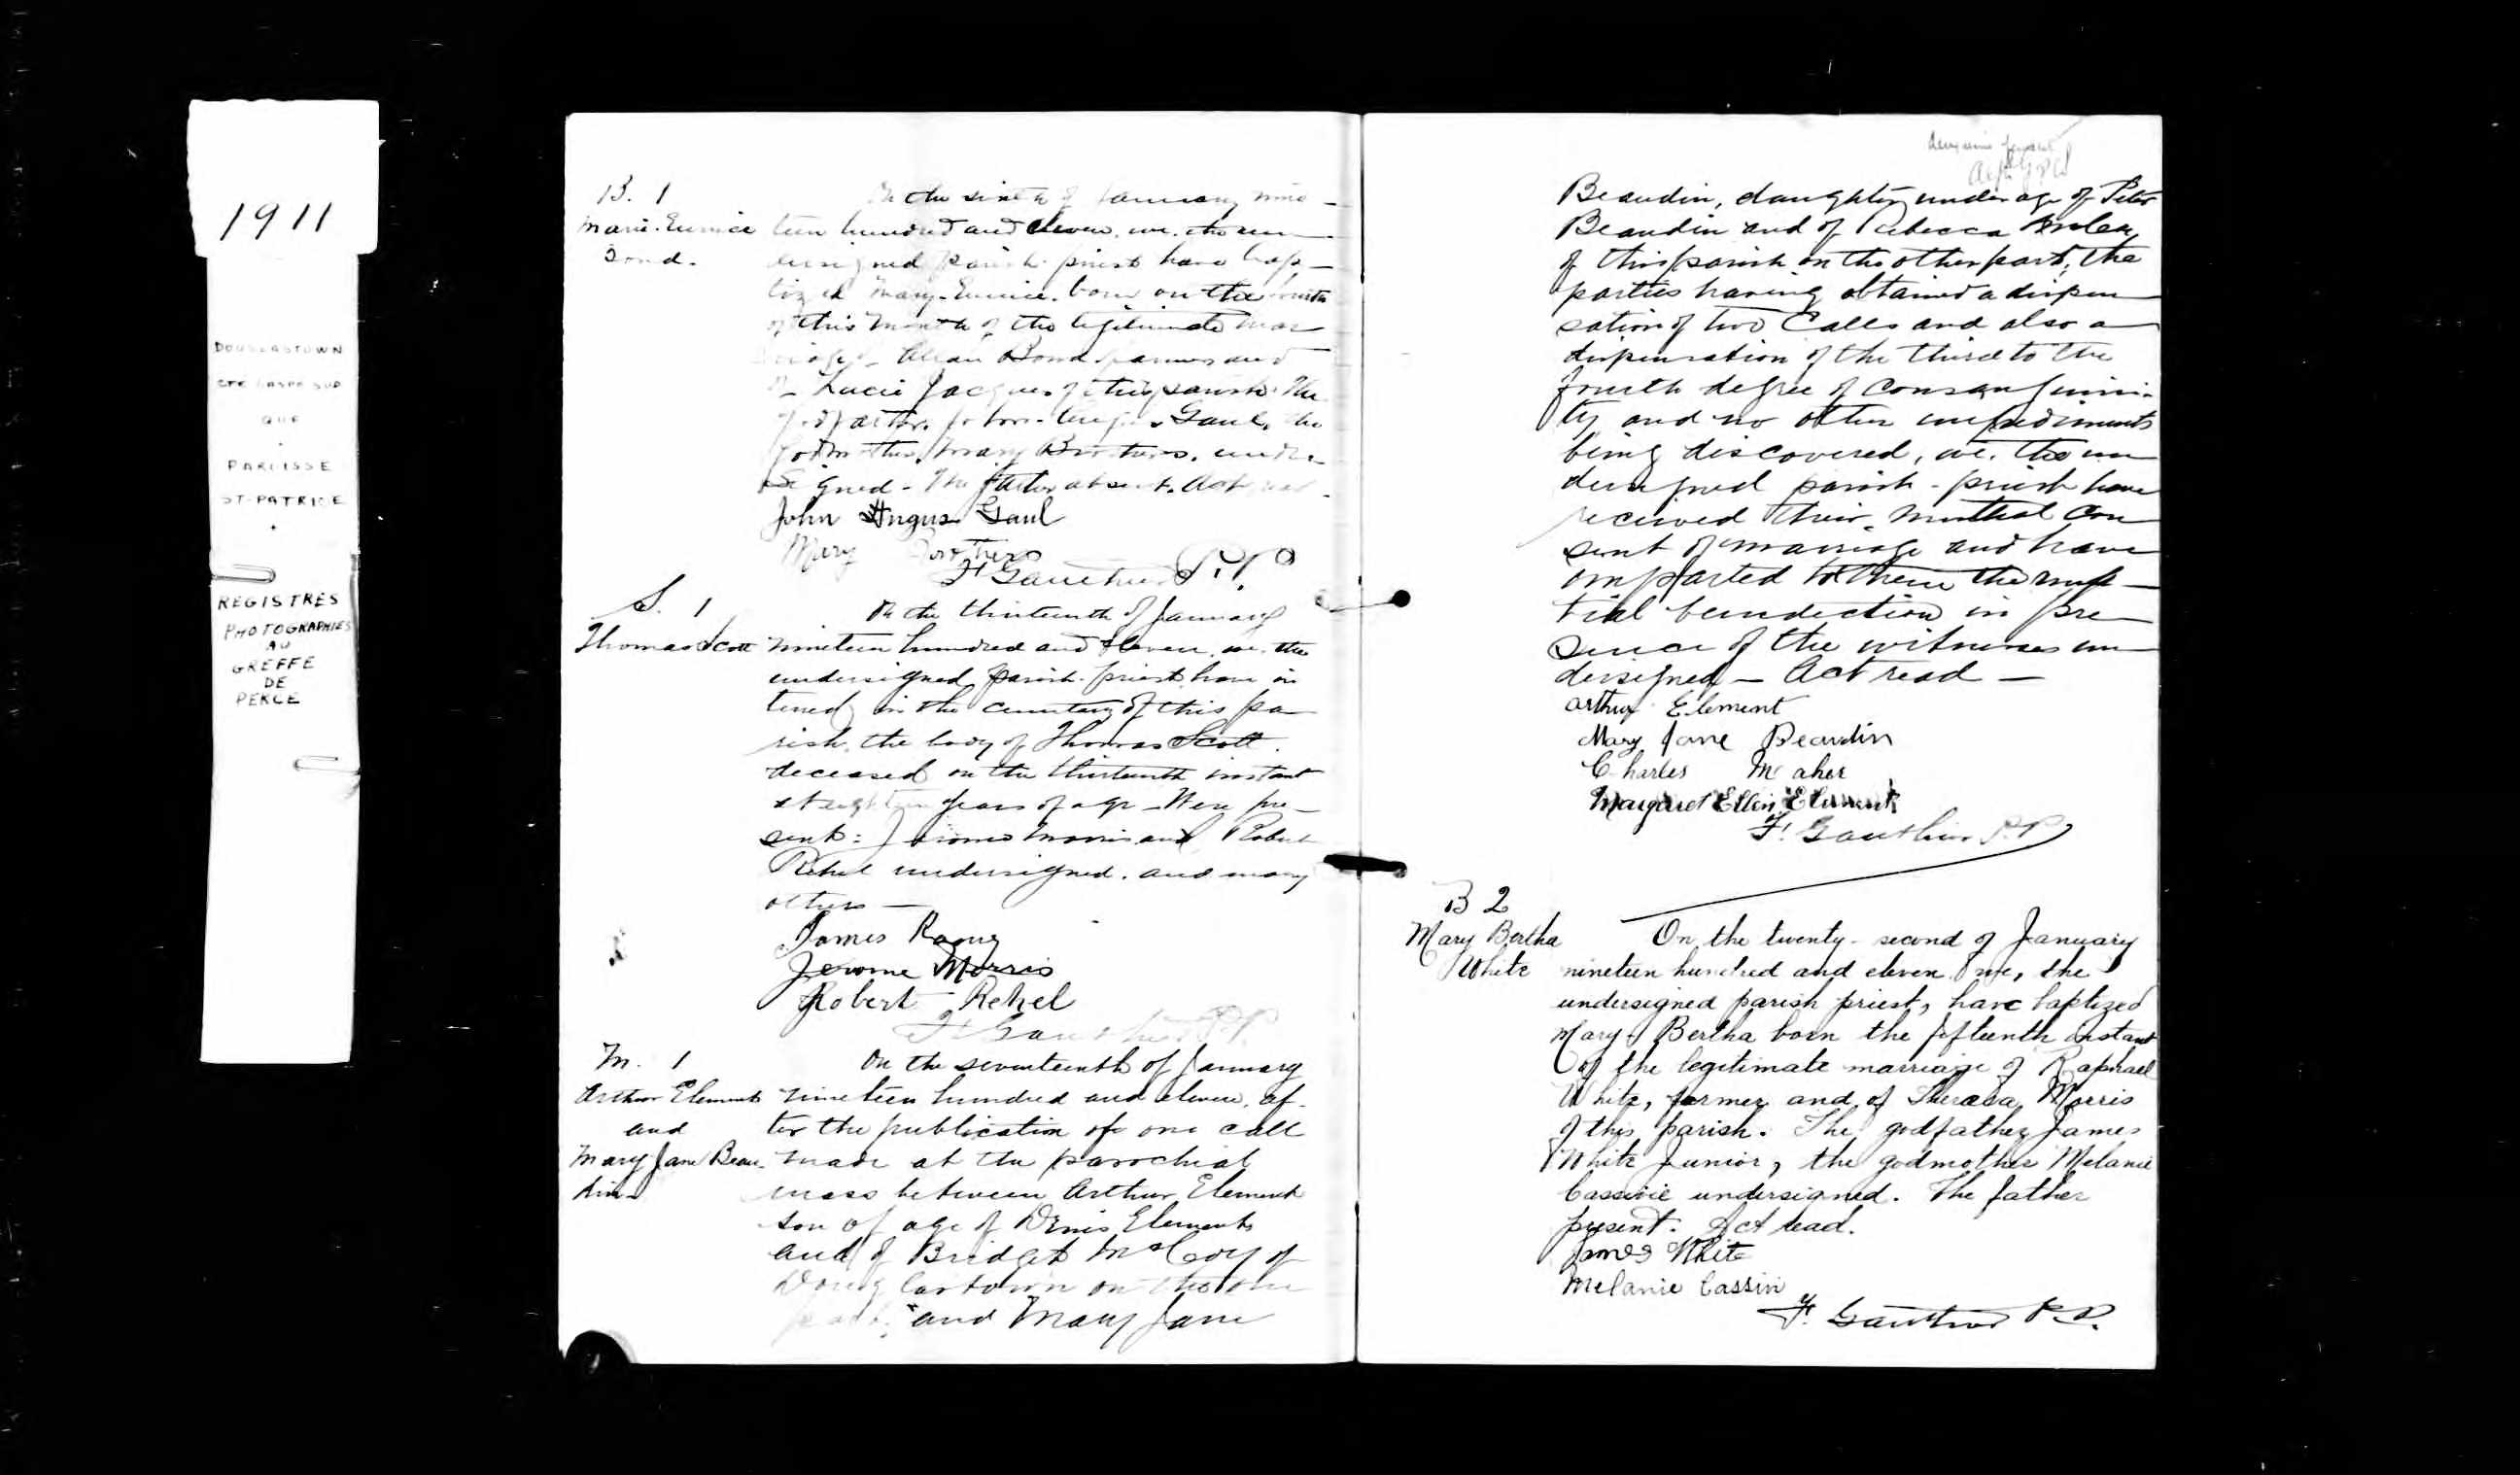 1911
DOUGLASTOWN
CTE GASPE SUD
QUE
PAROISSE
ST-PATRICE
REGISTRES
PHOTOGRAPHIES
AU
GREFFE
DE
PERCE
B. 1
Marie. Eunice
Bond.
On the sixth of January nine-
teen hundred and eleven, we, the un-
dersigned parish priest have bap-
tized Mary-Eunice. born on the fourth
of this month of the legitimate mar
riage of Alean Bond farmer and
of Lucie Jacques of this parish. The
godfather, John-Angus Gaul, the
godmother, Mary Brothers, under-
Signed - The father absent. Act read.
John Angus Gaul
Mary Brothers
F. Gauthier P.P.
S. 1
Thomas Scott
On the thirteenth of January
nineteen hundred and eleven, we the
undersigned parish-priest have in
terred in the cemetery of this pa-
rish, the body of Thomas Scott.
deceased on the thirteenth instant
at eighteen years of age - Were pre-
sent: Jerome Morris and Robert
Rehel undersigned. and many
others -
James
Jerome Morris
Robert Rehel
F. Gauthier P.P.
M. 1
Arthur Element
and
Mary Jane Beau-
din-
On the seventeenth of January
nineteen hundred and eleven, af-
ter the publication of one call
made at the parochial
mass between Arthur Element
son of age of Denis Element
and of Bridget McCoy of
Douglastown on the one
part, and Mary Jane
Beaudin, daughter under age of Peter
Beaudin and of Rebecca
of this parish on the other part; the
parties having obtained a dispen
sation of two Calls and also a
dispensation of the third to the
fourth degree of consanguini-
ty and no other impediments
being discovered, we, the un
dersigned parish-priest have
received their mutual con
sent of marriage and have
imparted to them the nup-
tial benediction in pre-
sence of the witnesses un
dersigned - Act read -
Arthur Element
Mary Jane Beaudin
Charles Maher
Margaret Ellen Element
F. Gauthier P.P.
B 2
Mary Bertha
White
On the twenty-second of January
nineteen hundred and eleven we, the
undersigned parish priest, have baptized
Mary-Bertha born the fifteenth instant
of the legitimate marriage of Raphael
White, farmer and of Theresa Morris
of this parish. The godfather James
White Junior, the godmother Melanie
Cassivie undersigned. The father
present. Act read.
James White
Melanie Cassivi
F. Gauthier P.P.